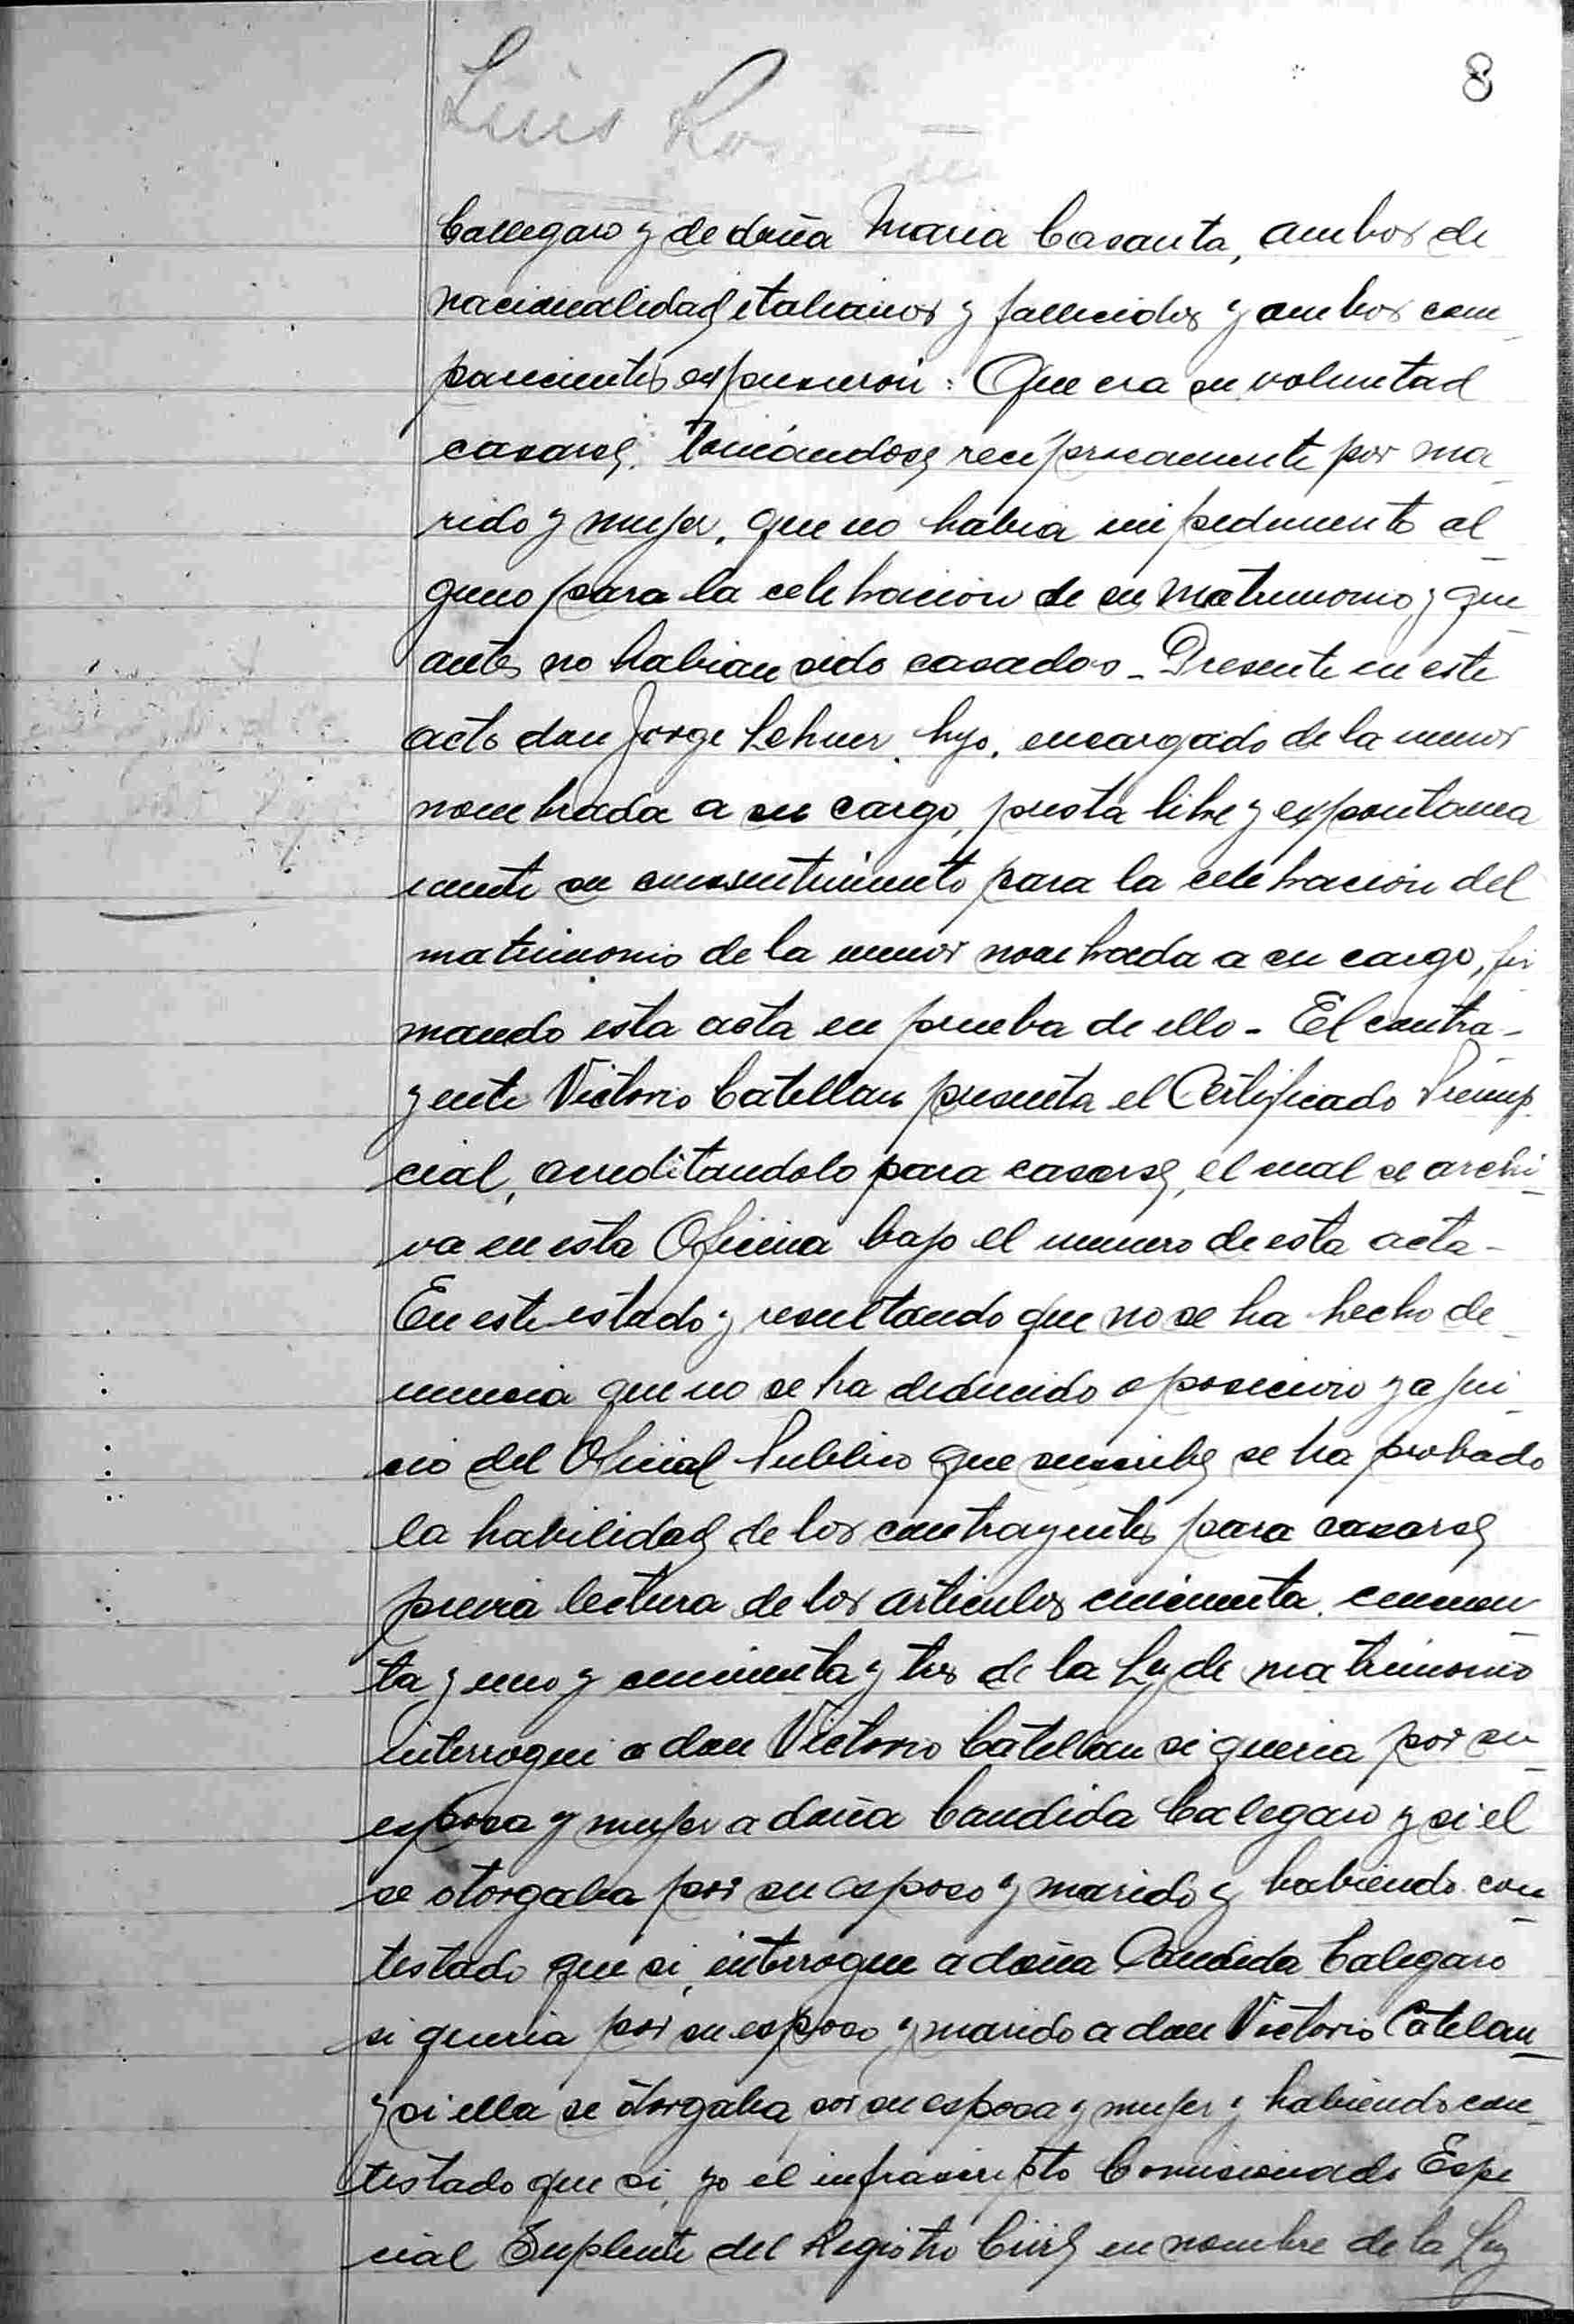 8
Luis
Callegaro y de doña Maria Casanta, ambos de
nacionalidad italianos y fallecidos y ambos com
parecientes expusieron: Que era su voluntad
casarse. tomándose reciprocamente por ma
rido y mujer, que no habia impedimento al
guno para la celebracion de su matrimonio y que
antes no habian sido casados - Presente en este
acto don Jorge Lehner hijo, encargado de la menor
nombrada a su cargo, presta libre y expontanea
mente su consentimiento para la celebracion del
matrimonio de la menor nombrada a su cargo, fir
mando esta acta en prueba de ello - El contra-
yente Victorio Catellan presenta el Certificado
cial, acreditandolo para casarse, el cual se archi
va en esta Oficina bajo el numero de esta acta -
En este estado y resultando que no se ha hecho de
nuncia que no se ha deducido oposicion y a jui
cio del Oficial Publico que suscribe se ha probado
la habilidad de los contrayentes para casarse
previa lectura de los articulos cincuenta, cincuen
ta y uno y cincuenta y tres de la Ley de matrimonio
interrogue a don Victorio Catellan si queria por su
esposa y mujer a doña Candida Calegaro y si el
se otorgaba por su esposo y marido y habiendo con
testado que si, interrogue a doña Candida Calegaro
si queria por su esposo y marido a don Victorio Catelan
y si ella se otorgaba por su esposa y mujer y habiendo con
testado que si, yo el infrascripto Comisionado Espe
cial Suplente del Registro Civil en nombre de la Ley